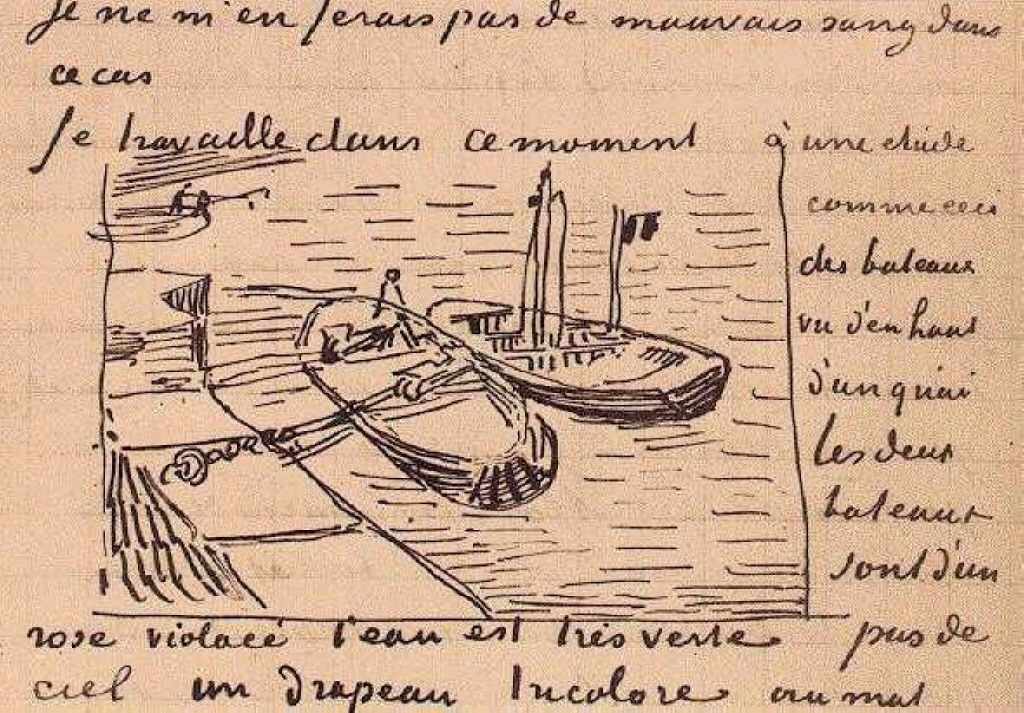 Je ne m'en ferais pas de mauvais sang dans
ce cas
Je travaille dans ce moment à une etude
comme ceci
des bateaux
vu d'en haut
d'un quai
les deux
bateaux
sont d'un
rose violacé l'eau est très verte pas de
ciel un drapeau tricolore au mat